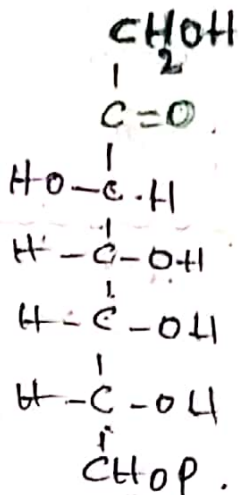 CH2OH
C=O
HO-C-H
H-C-OH
H-C-OH
H-C-OH
CHOP.